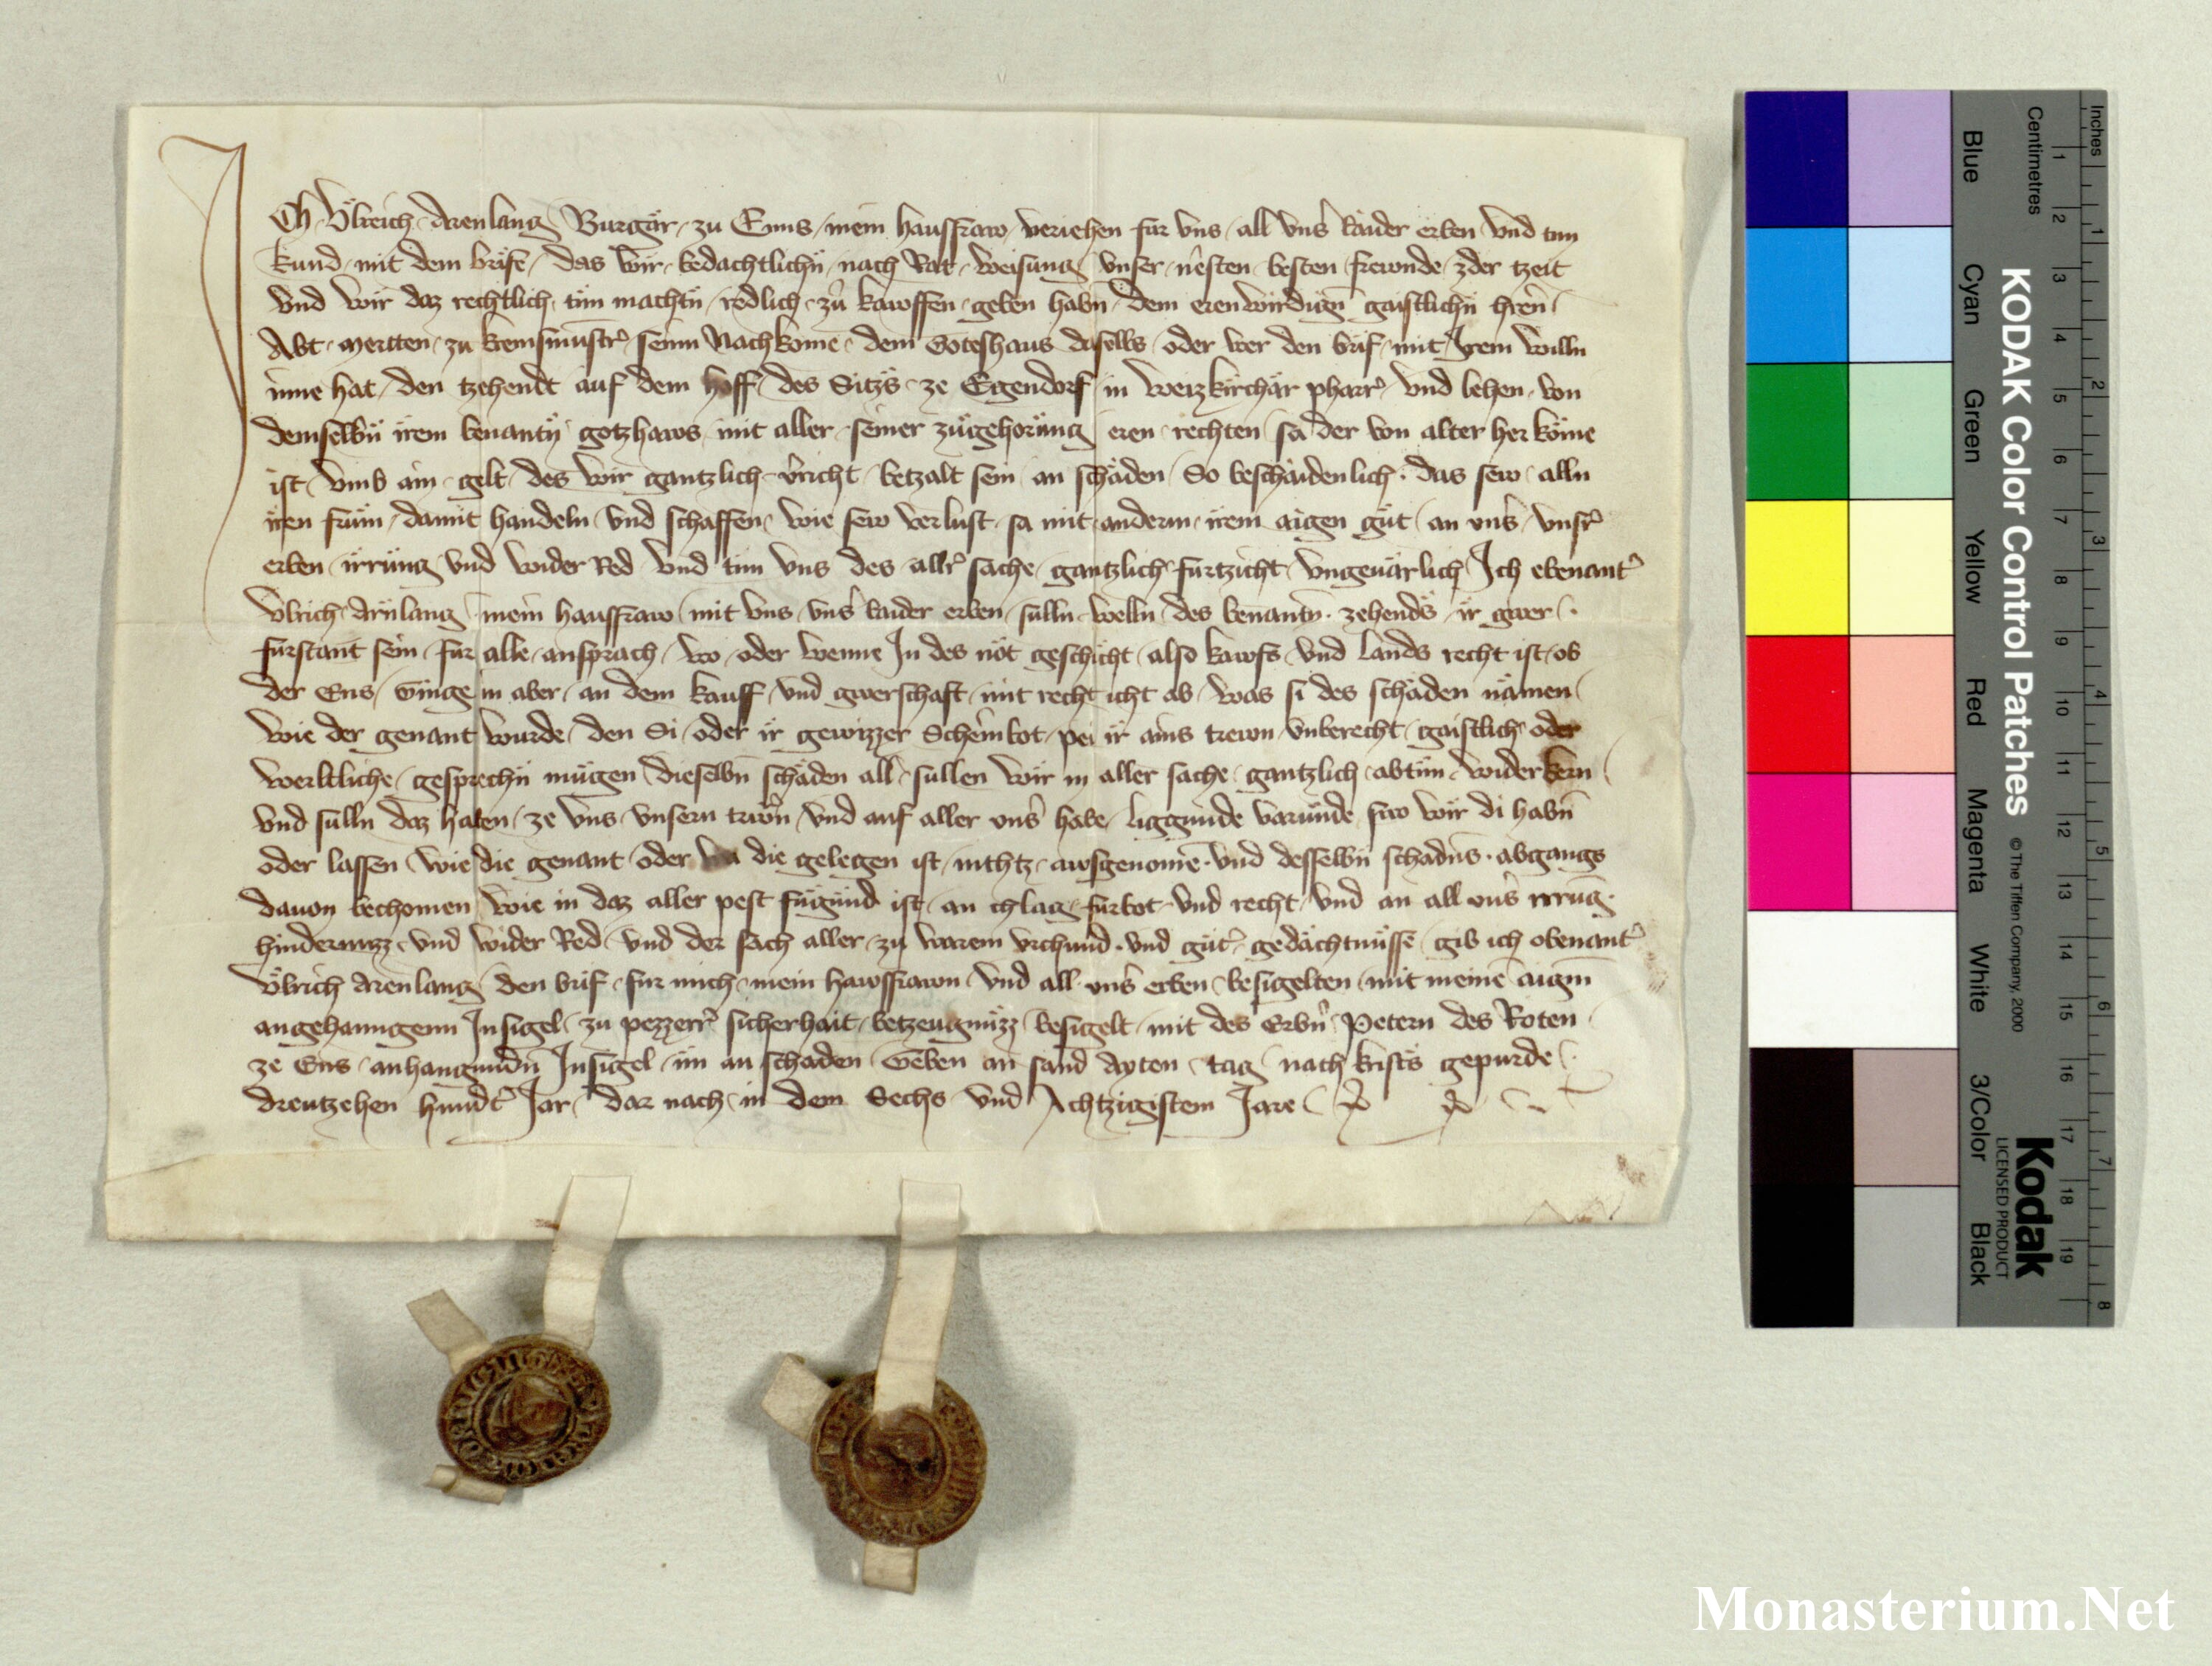 Ich Ůlreich Arenlang Burgär zu Enns mein hausfraw veriehen für vns all vnsˀ baider erben vnd tun
kund mit dem brife das wir bedachtlichn nach Rat weisung vnser nesten besten frewnde zder tzeit
vnd wir daz rechtlich tün machtn redlich zu kawffen geben habn dem erenwirdign gaistlichn hren
Abt Mertten zu kremsmunstˀ seinn Nachkome dem Goteshaus daselbs oder wer den brif mit Irem willn
inne hat den tzehendt auf dem hoff des Sitzs ze Egendorf in Weizkirchär pharrˀ vnd lehen von
demselbn irem benantn gotzhaws mit aller seiner zugehorung eren rechten sa der von alter her kome
ist vmb ain gelt des wir gantzlich vˀricht betzalt sein an schäden So beschaidenlich das sew alln
iren frum damit handeln vnd schaffen wie sew verlust sa mit anderm irem aigen gut an vns vnsrˀ
erben irrung vnd wider Red vnd tun vns des allrˀ sache gantzlich furtzicht vngeuärlich Ich ebenantˀ
Ulrich Arnlang mein hausfraw mit vns vnsˀ baider erben sulln welln des benantn zehends ir gwer
furstant sein für alle ansprach wo oder wenne In des not geschicht also kawfs vnd lands recht ist ob
der Ens Ginge in aber an dem kauff vnd gwerschaft mit recht icht ab was si des schäden nämen
wie der genant wurde den Si oder ir gewizzer Scheinbot pei ir ains trewn vnberecht gaistlich oder
werltliche gesprechn mügen dieselbn schäden all sullen wir in aller sache gantzlich abtün widerkern
vnd sulln daz haben ze vns vnsern triwn vnd auf aller vnsˀ habe liggunde varunde swo wir di habn
oder lassen wie die genant oder wa die gelegen ist nihtz awsgenome vnd desselbn schadns abgangs
dauon bechomen wie in daz aller pest fugund ist an chlag furbot vnd recht vnd an all vnsˀ irrug
hindernuzz vnd wider Red vnd der sach aller zu warem vrchund vnd gutˀ gedächtnüsse gib ich obenantˀ
Ulrich Arenlang den brif fur mich mein hawsfrawn vnd all vnsˀ erben besigelten mit meine aigm
angehanngenn Insigel zu pezzerrˀ sicherhait betzeugnuzz besigelt mit des Erbn Petern des Roten
ze Ens anhangundn Insigel im an schaden Geben an sand Ayten tag nach krists gepurde
dreutzehen hundˀt Jar dar nach in dem Sechs vnd Achtzigistem Jare
KODAK Color Control Patches
© The Tiffen Company, 2000
Kodak
LICENSED PRODUCT
Inches
Centimetres
1 2 3 4 5 6 7 8
1 2 3 4 5 6 7 8 9 10 11 12 13 14 15 16 17 18 19
Blue
Cyan
Green
Yellow
Red
Magenta
White
3/Color
Black
Monasterium.Net